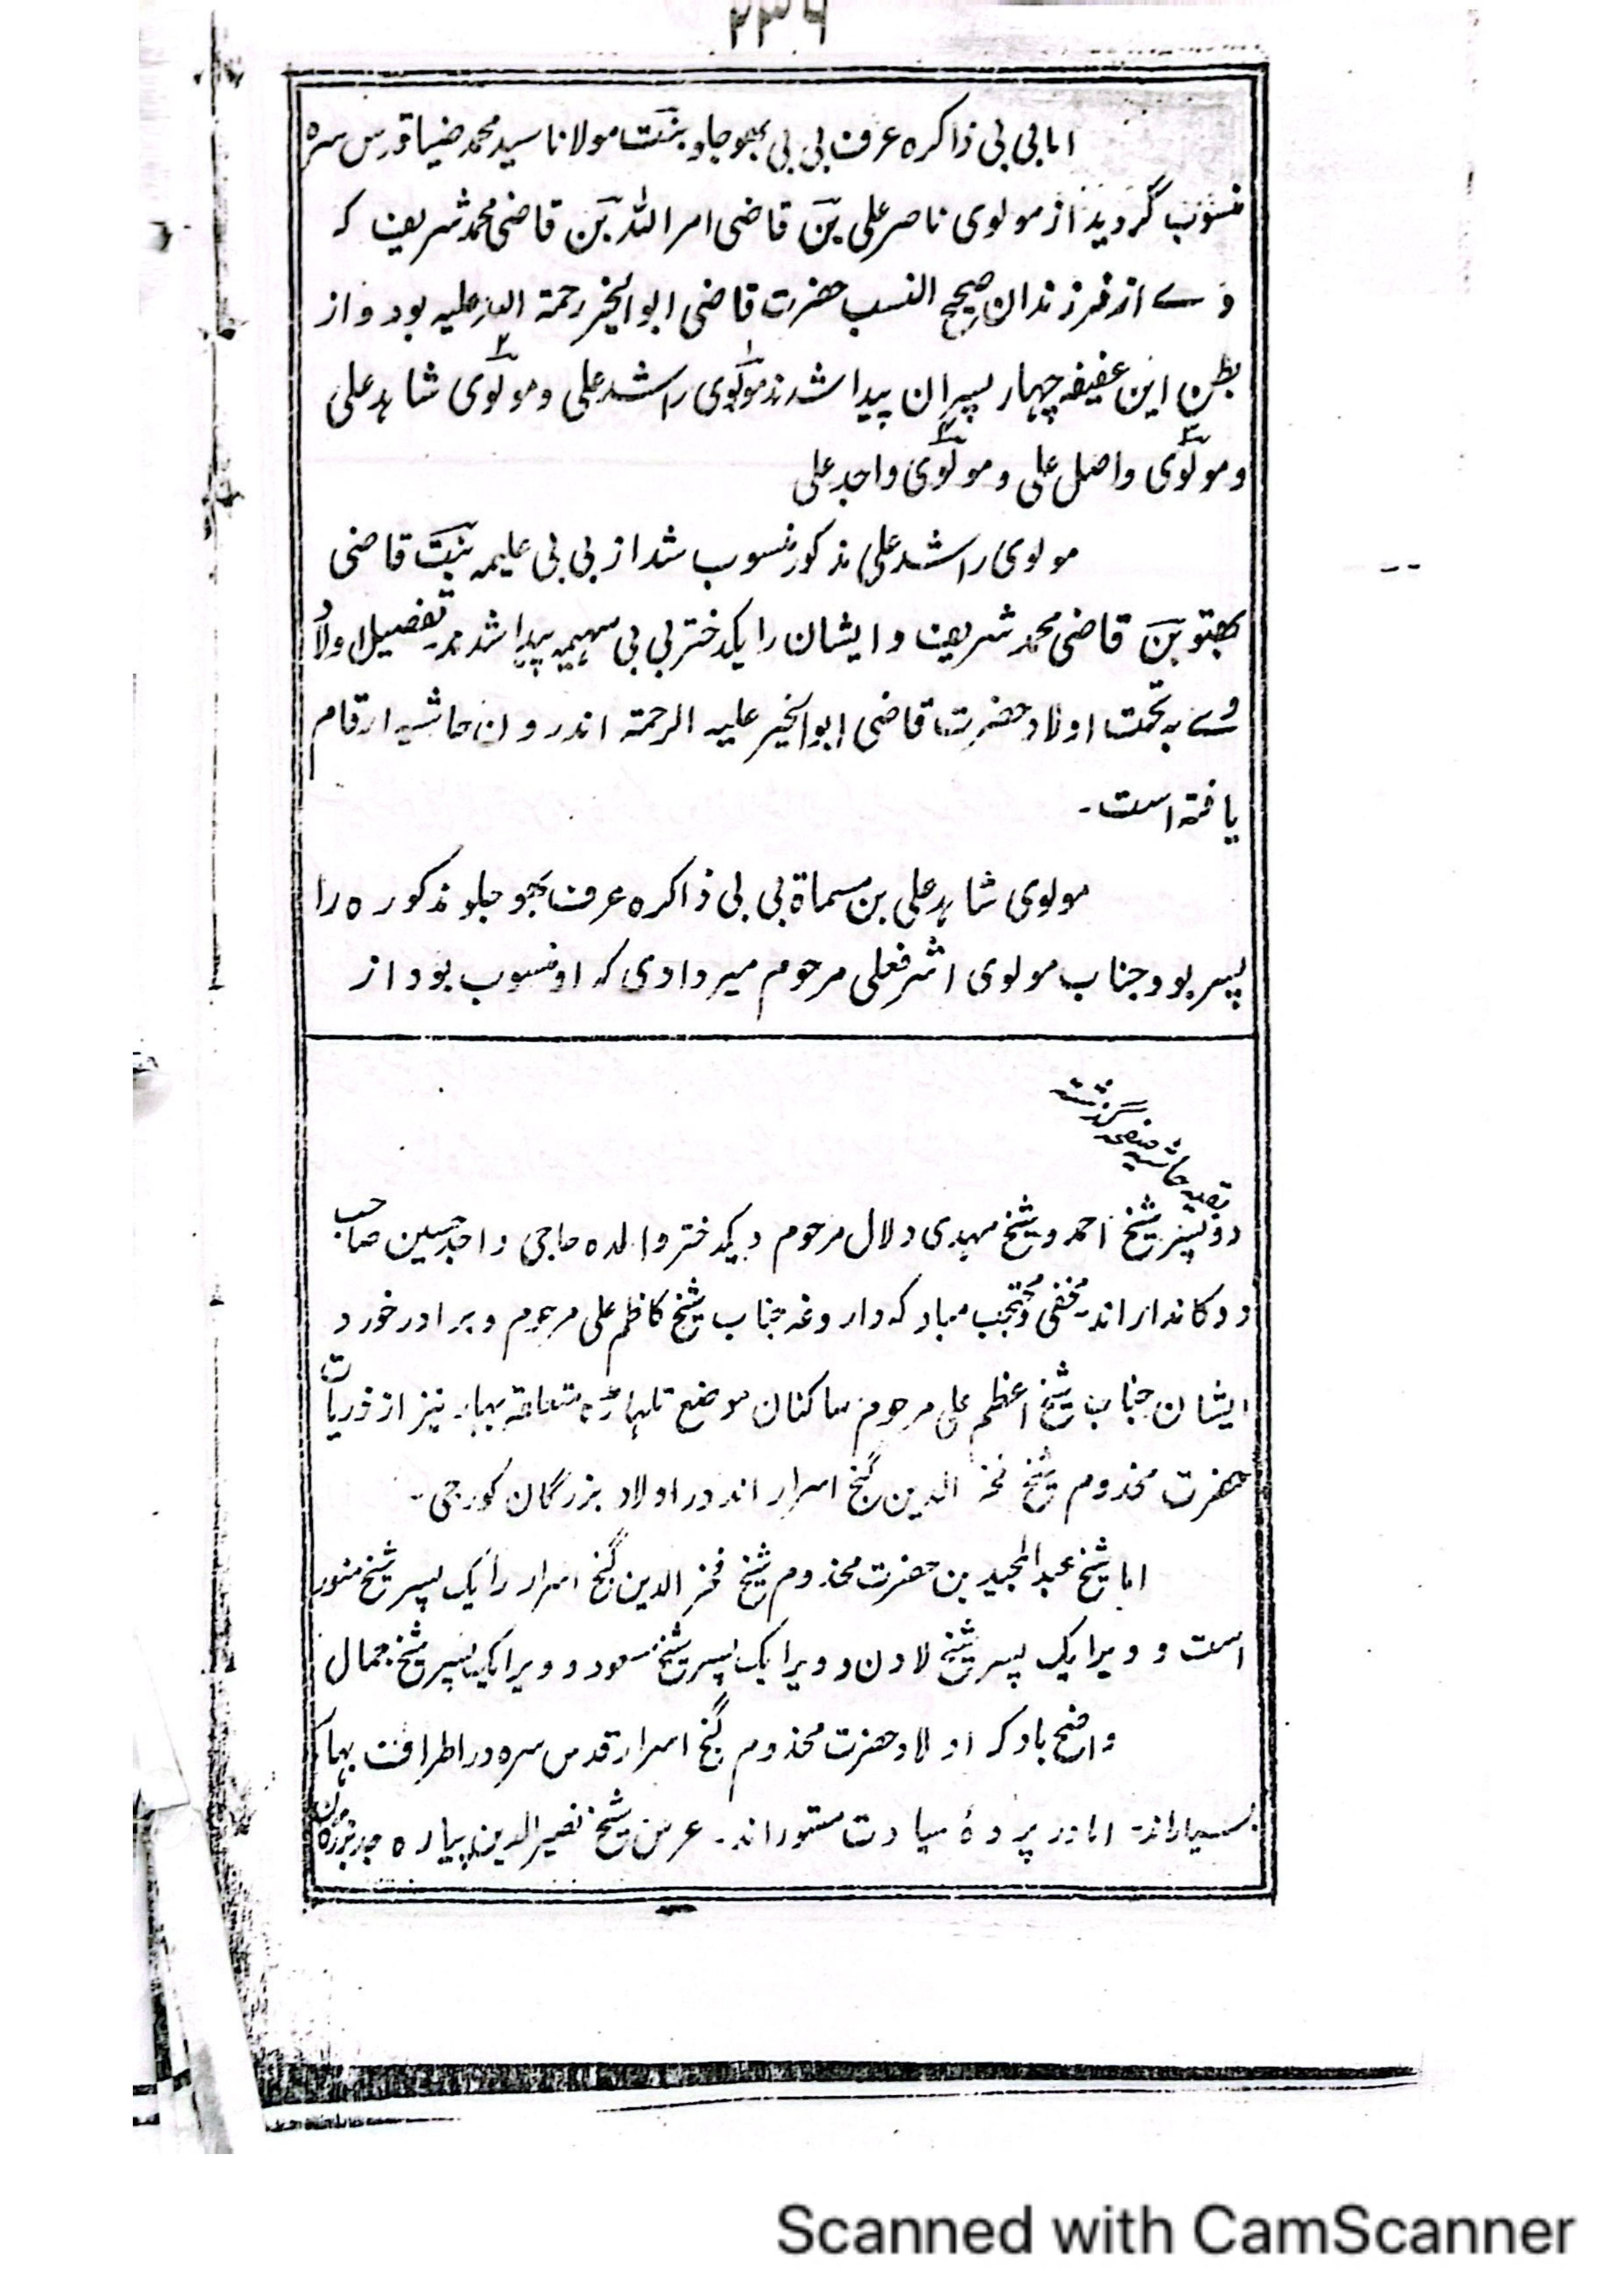 ۲۳۶
اما بی بی ذاکره عرف بی بی بھوجلو بنت مولانا سید محمد ضیا قدس سره
منسوب گردید از مولوی ناصر علی بن قاضی امر الله بن قاضی محمد شریف که
وے از فرزندان صحیح النسب حضرت قاضی ابوالخیر رحمة الله علیه بود و از
بطن این عفیفه چهار پسران پیدا شدند مولوی راشد علی و مولوی شاہد علی
و مولوی واصل علی و مولوی واجد علی
مولوی راشد علی مذکور منسوب شد از بی بی علیمه بنت قاضی
بن قاضی محمد شریف و ایشان را یکدختر بی بی سہیمہ پیدا شدند تفصیل اولاد
وے به تحت اولاد حضرت قاضی ابوالخیر علیه الرحمة اندرون حاشیه ارقام
یافته است -
مولوی شاہد علی بن مسماة بی بی ذاکره عرف بھوجلو مذکوره را
پسر بود جناب مولوی اشرفعلی مرحوم میردادی که او منسوب بود از
بقیه حاشیه صفحه گذشته
دو پسر شیخ احمد و شیخ مہدی دلال مرحوم و یکدختر والده حاجی واجد حسین صاحب
دوکاندار اند مخفی و محتجب مباد که داروغه جناب شیخ کاظم علی مرحوم و برادر خورد
ایشان جناب شیخ اعظم علی مرحوم ساکنان موضع تلہاڑه متعلقه بہار نیز از ذریات
حضرت مخدوم شیخ فخر الدین گنج اسرار اند در اولاد بزرگان کورجی -
اما شیخ عبدالمجید بن حضرت مخدوم شیخ فخر الدین گنج اسرار را یک پسر شیخ منور
است و ویرا یک پسر شیخ لادن و ویرا یک پسر شیخ مسعود و ویرا یک پسر شیخ جمال
واضح باد که اولاد حضرت مخدوم گنج اسرار قدس سره در اطراف بہار
بسیار اند اما در پردهٔ سیادت مستور اند - عرس شیخ نصیر الدین پیاره
Scanned with CamScanner